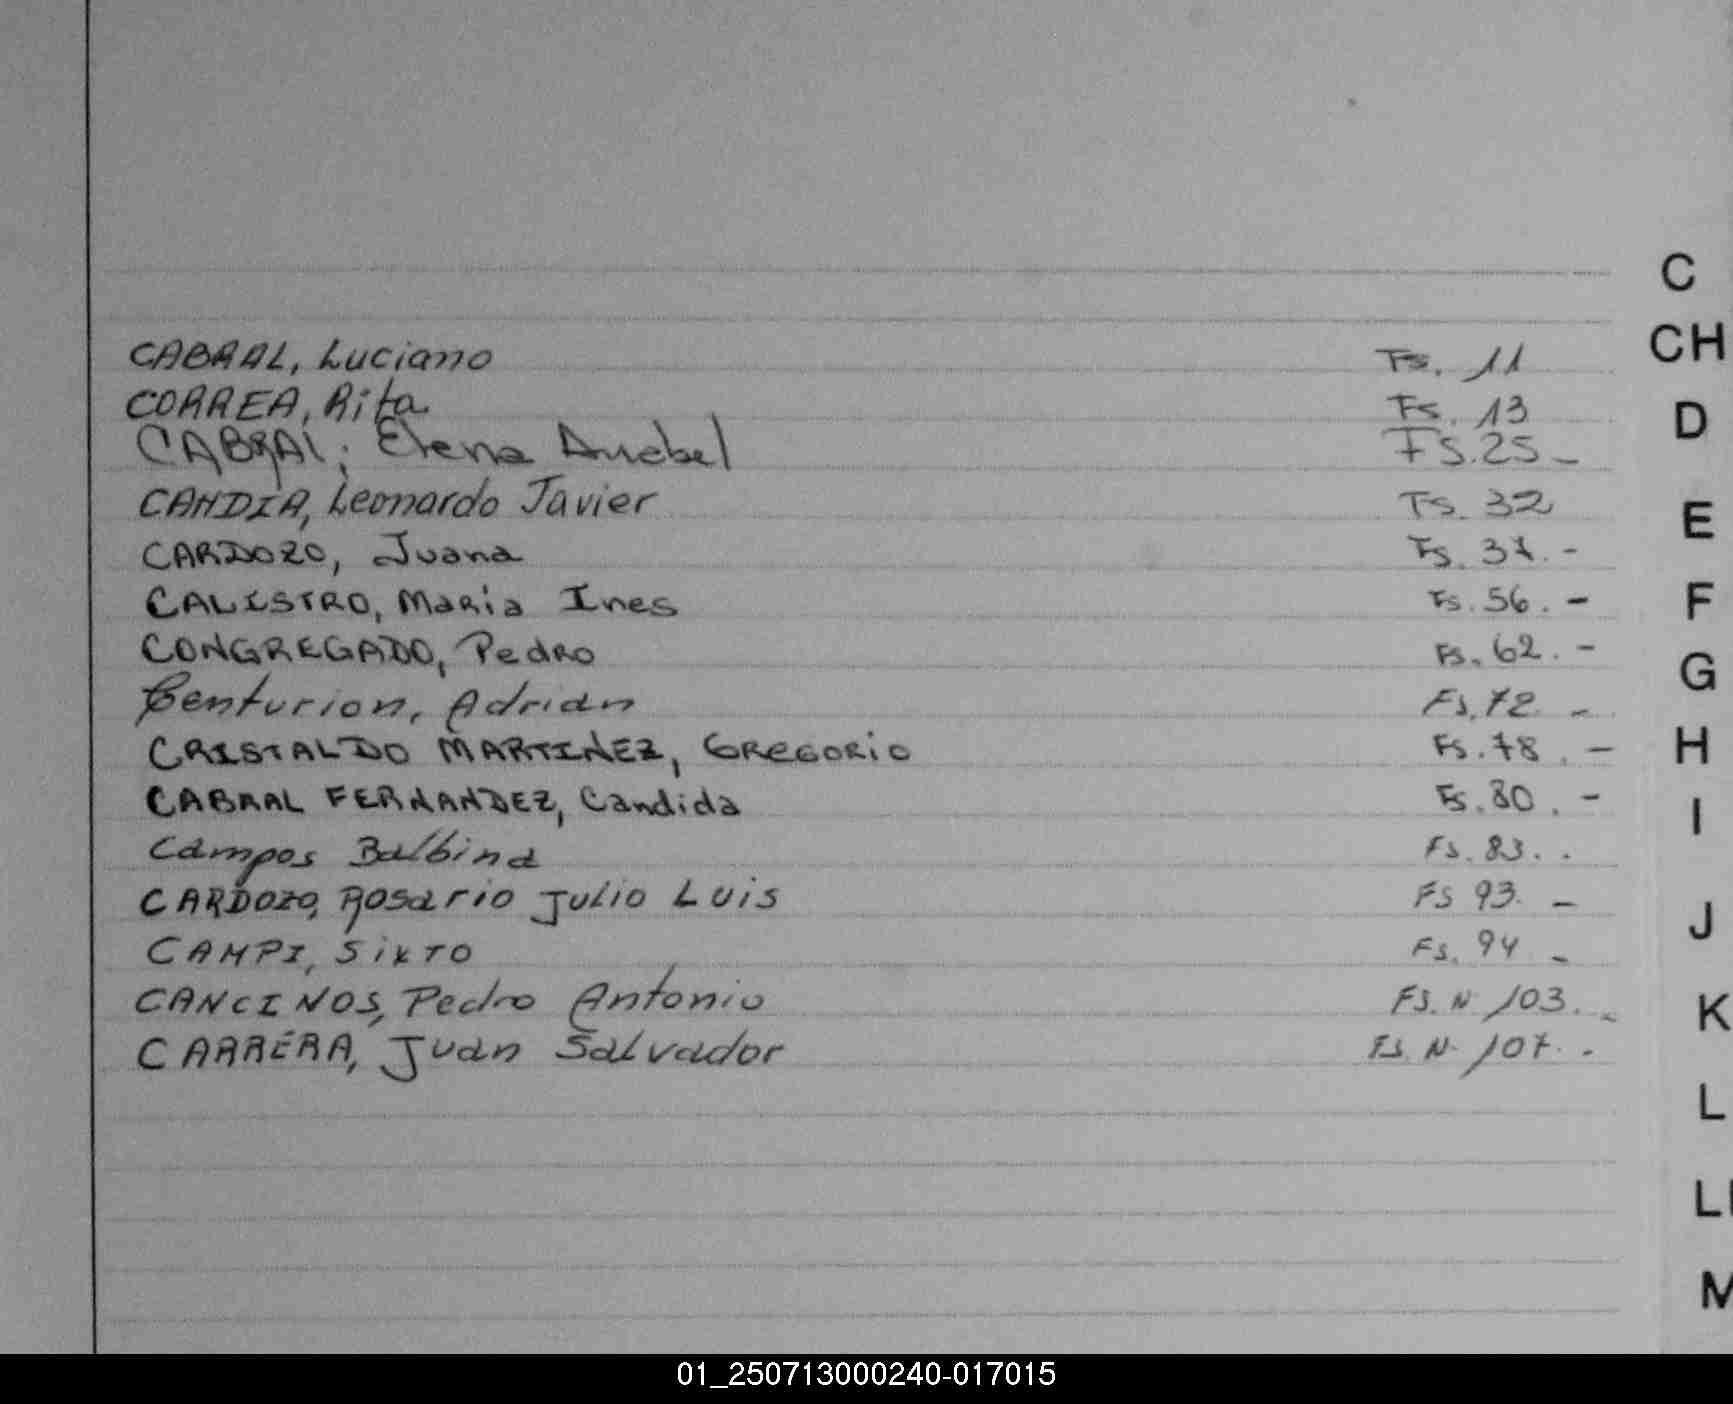 CABRAL, Luciano Fs. 11
CORREA, Rita Fs. 13
CABRAL; Elena Anabel Fs. 25 -
CANDIA, Leonardo Javier Fs. 32
CARDOZO, Juana Fs. 37. -
CALISTRO, Maria Ines Fs. 56. -
CONGREGADO, Pedro Fs. 62. -
Centurion, Adrian Fs. 72 -
CRISTALDO MARTINEZ, GREGORIO Fs. 78. -
CABRAL FERNANDEZ, Candida Fs. 80. -
Campos Balbina Fs. 83. .
CARDOZO, Rosario Julio Luis FS 93. -
CAMPI, Sixto Fs. 94 -
CANCINOS, Pedro Antonio FS. N. 103. -
CARRERA, Juan Salvador FS N. 107. -
C
CH
D
E
F
G
H
I
J
K
L
LL
M
01_250713000240-017015